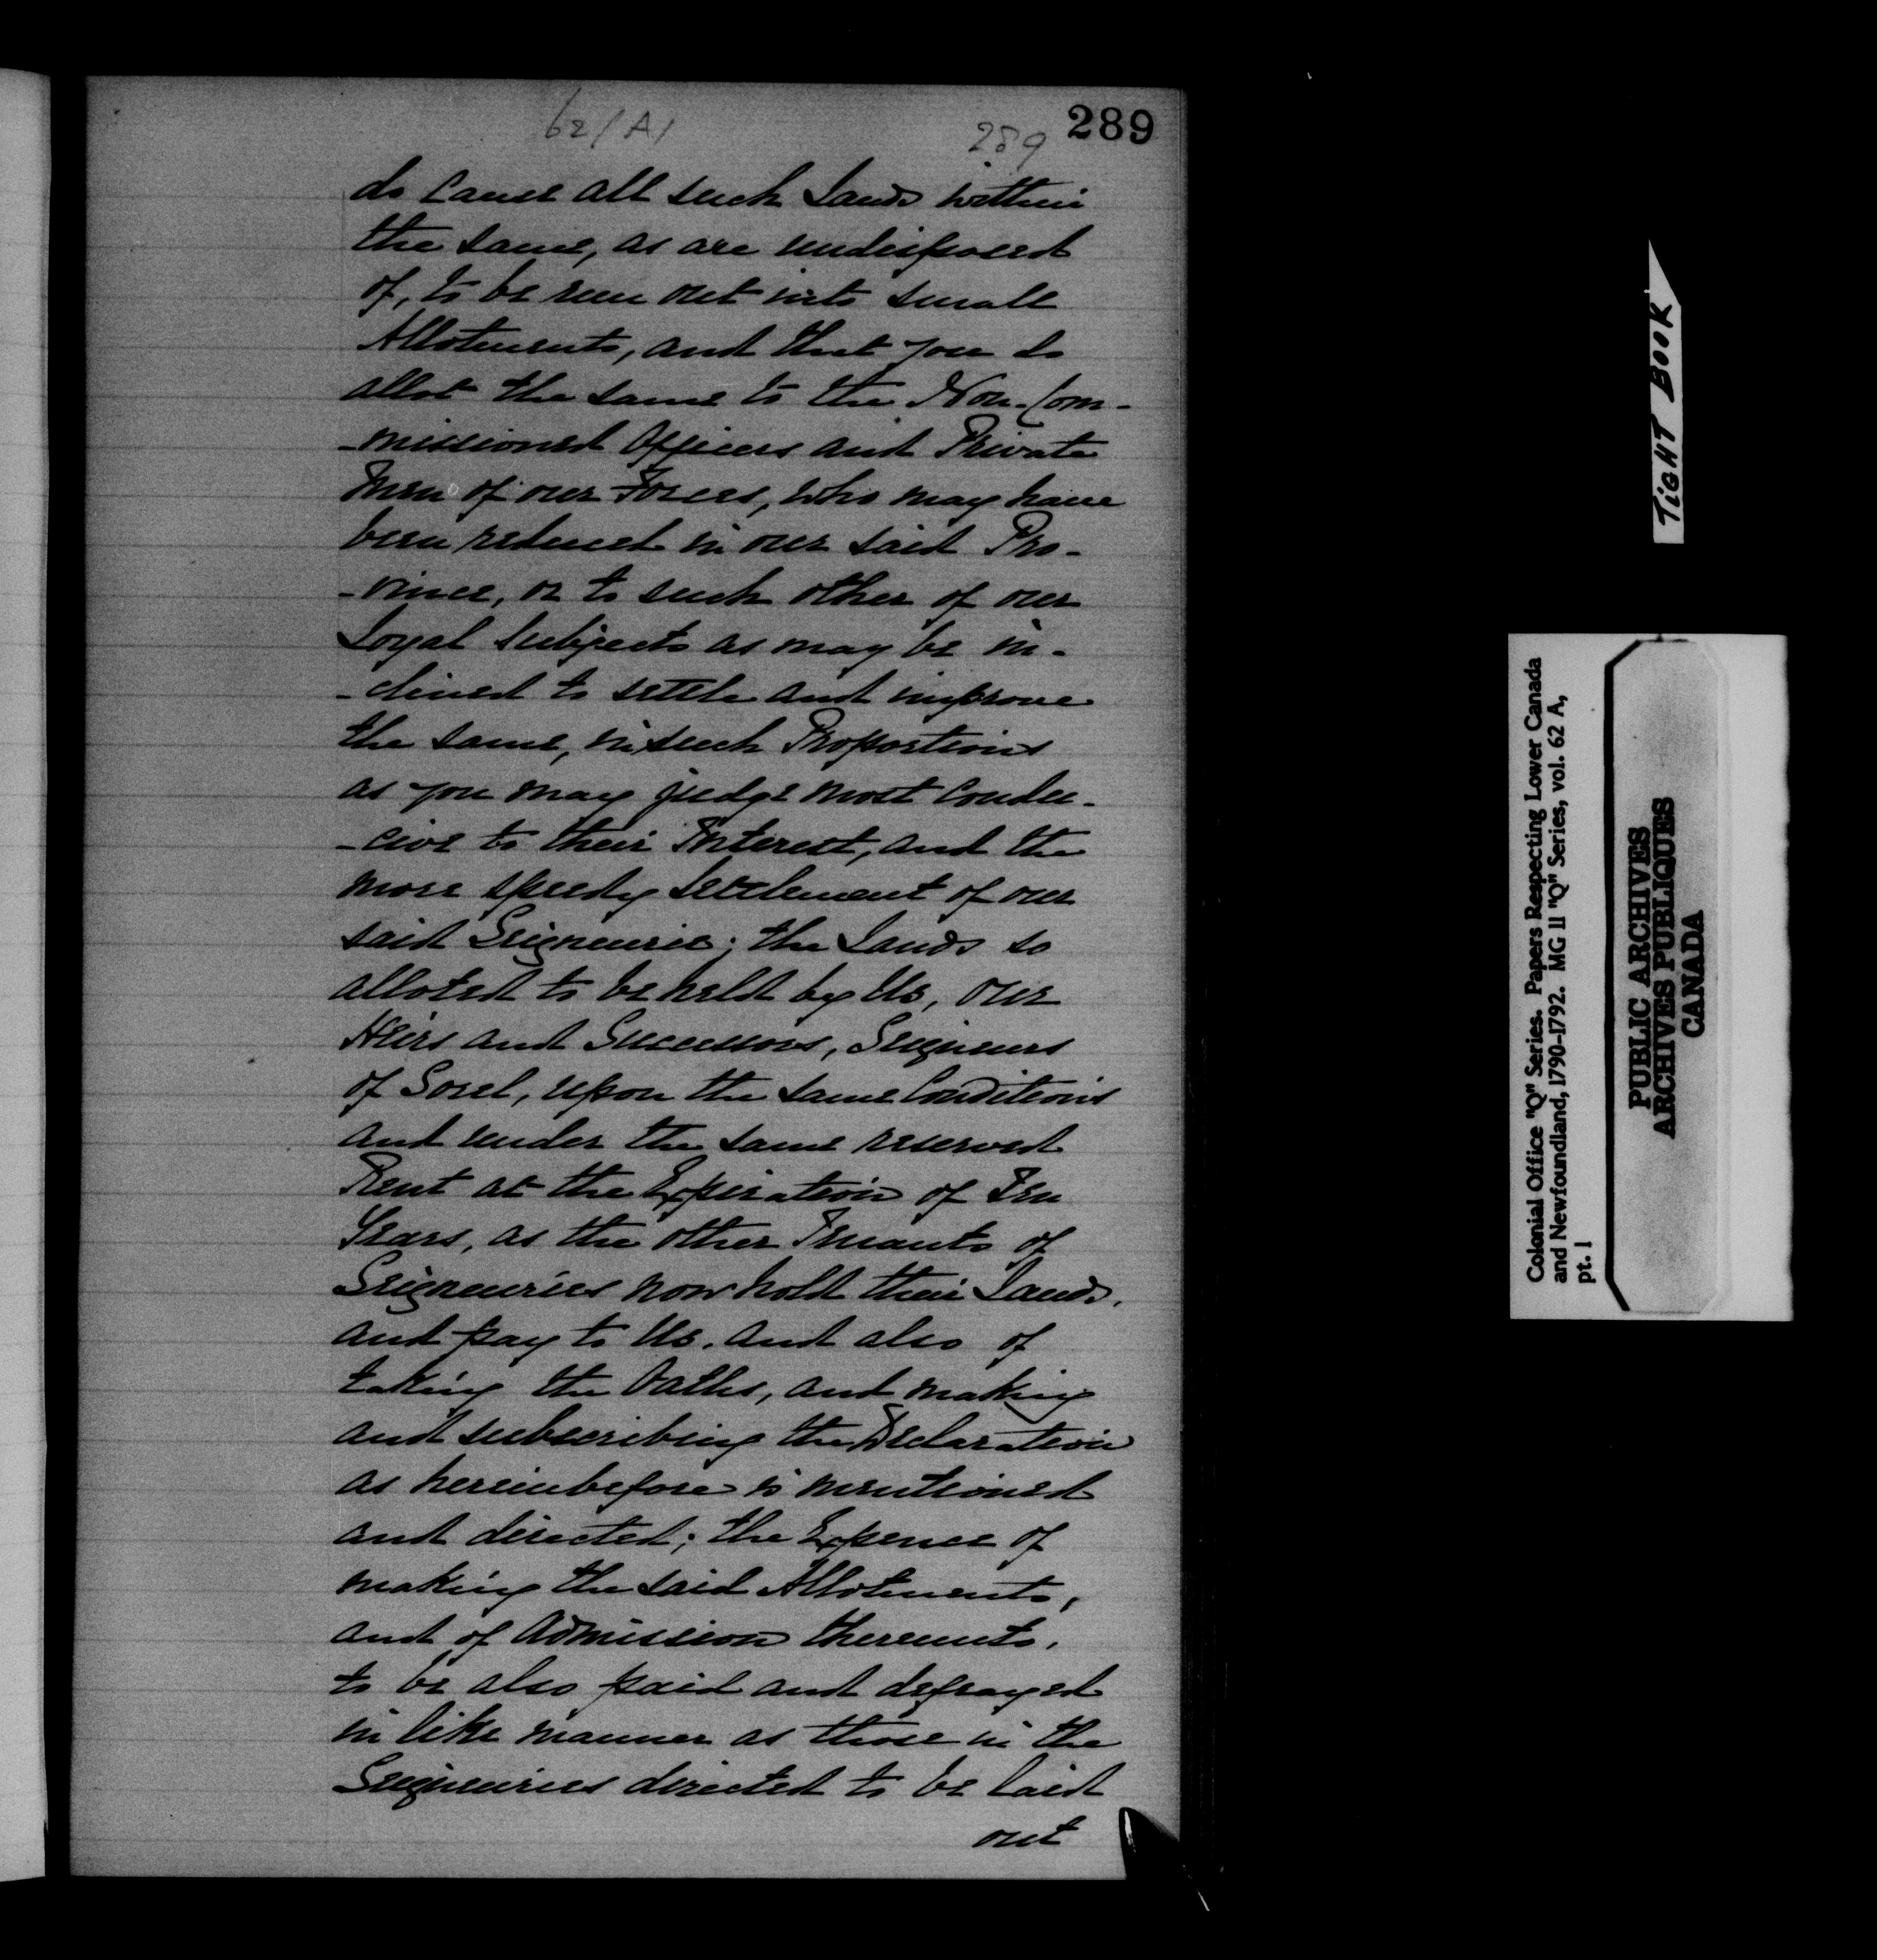 62/A/
289 289
do cause all such Lands within
the same, as are undisposed
of, to be run out into small
Allotments, and that you do
allot the same to the Non-Com-
-missioned Officers and Private
Men of our Forces, who may have
been reduced in our said Pro-
-vince, or to such other of our
Loyal Subjects as may be in-
-clined to settle and improve
the same, in such Proportions
as you may judge most Condu-
-cive to their Interest, and the
more speedy Settlement of our
said Seigneurie; the Lands so
alloted to be held by Us, our
Heirs and Successors, Seigneurs
of Sorel, upon the same Conditions
and under the same reserved
Rent at the Expiration of Ten
Years, as the other Tenants of
Seigneuries now hold their Lands,
and pay to Us. and also of
taking the Oaths, and making
and subscribing the Declaration
as hereinbefore is mentioned
and directed; the Expence of
making the said Allotments,
and of Admission thereunto,
to be also paid and defrayed
in like manner as those in the
Seigneuries directed to be laid
out
TIGHT BOOK
Colonial Office "Q" Series. Papers Respecting Lower Canada
and Newfoundland, 1790-1792. MG 11 "Q" Series, vol. 62 A,
pt. 1
PUBLIC ARCHIVES
ARCHIVES PUBLIQUES
CANADA